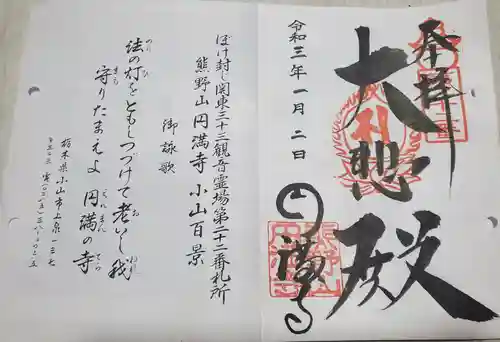 奉拝
大悲殿
円満寺
令和三年一月二日
ぼけ封じ関東三十三観音霊場第二十二番札所
熊野山円満寺 小山百景
御詠歌
法の灯をともしつづけて老いし我
守りたまえよ 円満の寺
栃木県小山市上泉